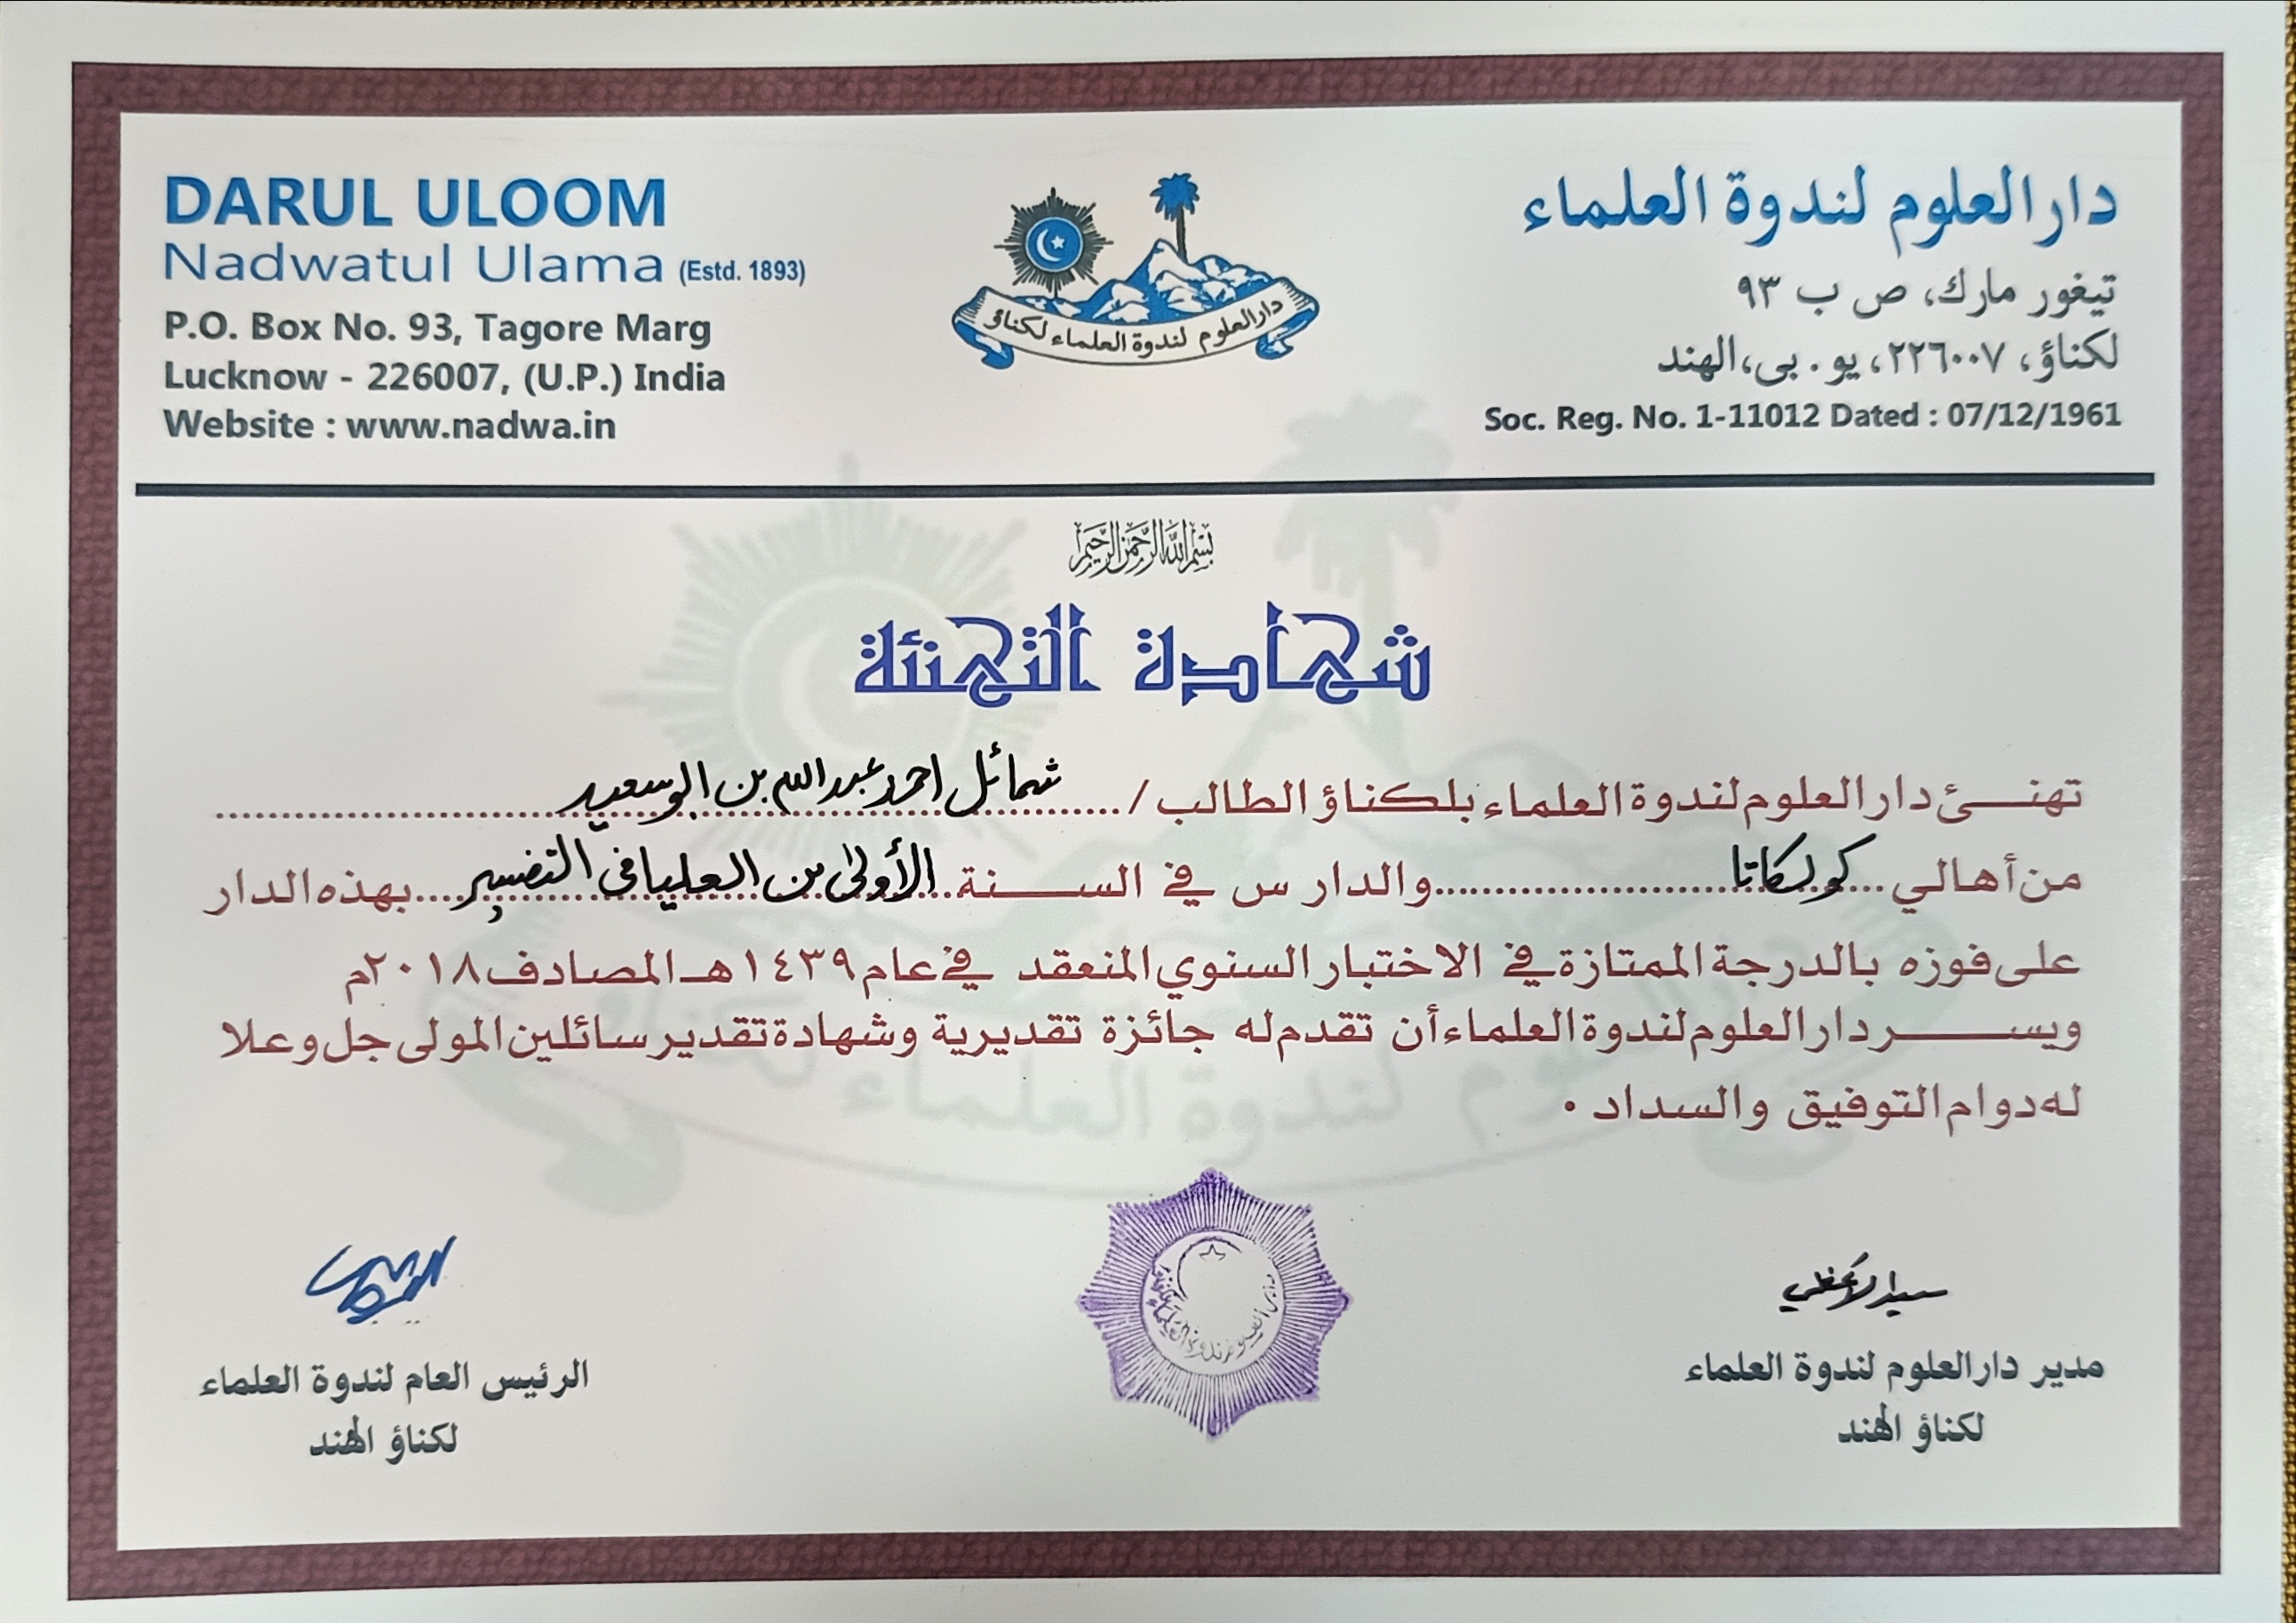 DARUL ULOOM
Nadwatul Ulama (Estd. 1893)
P.O. Box No. 93, Tagore Marg
Lucknow - 226007, (U.P.) India
Website : www.nadwa.in
دارالعلوم لندوة العلماء لكناؤ
دارالعلوم لندوة العلماء
تيغور مارك، ص ب ٩٣
لكناؤ، ٢٢٦٠٠٧، يو . بى، الهند
Soc. Reg. No. 1-11012 Dated : 07/12/1961
بسم الله الرحمن الرحيم
شهادة التهنئة
تهنئ دارالعلوم لندوة العلماء بلكناؤ الطالب / شمائل احمد عبد الله بن ابو سعيد
من أهالي كولكاتا والدارس في السنة الأولى من العليا في التفسير بهذه الدار
على فوزه بالدرجة الممتازة في الاختبار السنوي المنعقد في عام ١٤٣٩هـ المصادف ٢٠١٨م
ويسر دارالعلوم لندوة العلماء أن تقدم له جائزة تقديرية وشهادة تقدير سائلين المولى جل وعلا
له دوام التوفيق والسداد ٠
مدير دارالعلوم لندوة العلماء
لكناؤ الهند
الرئيس العام لندوة العلماء
لكناؤ الهند